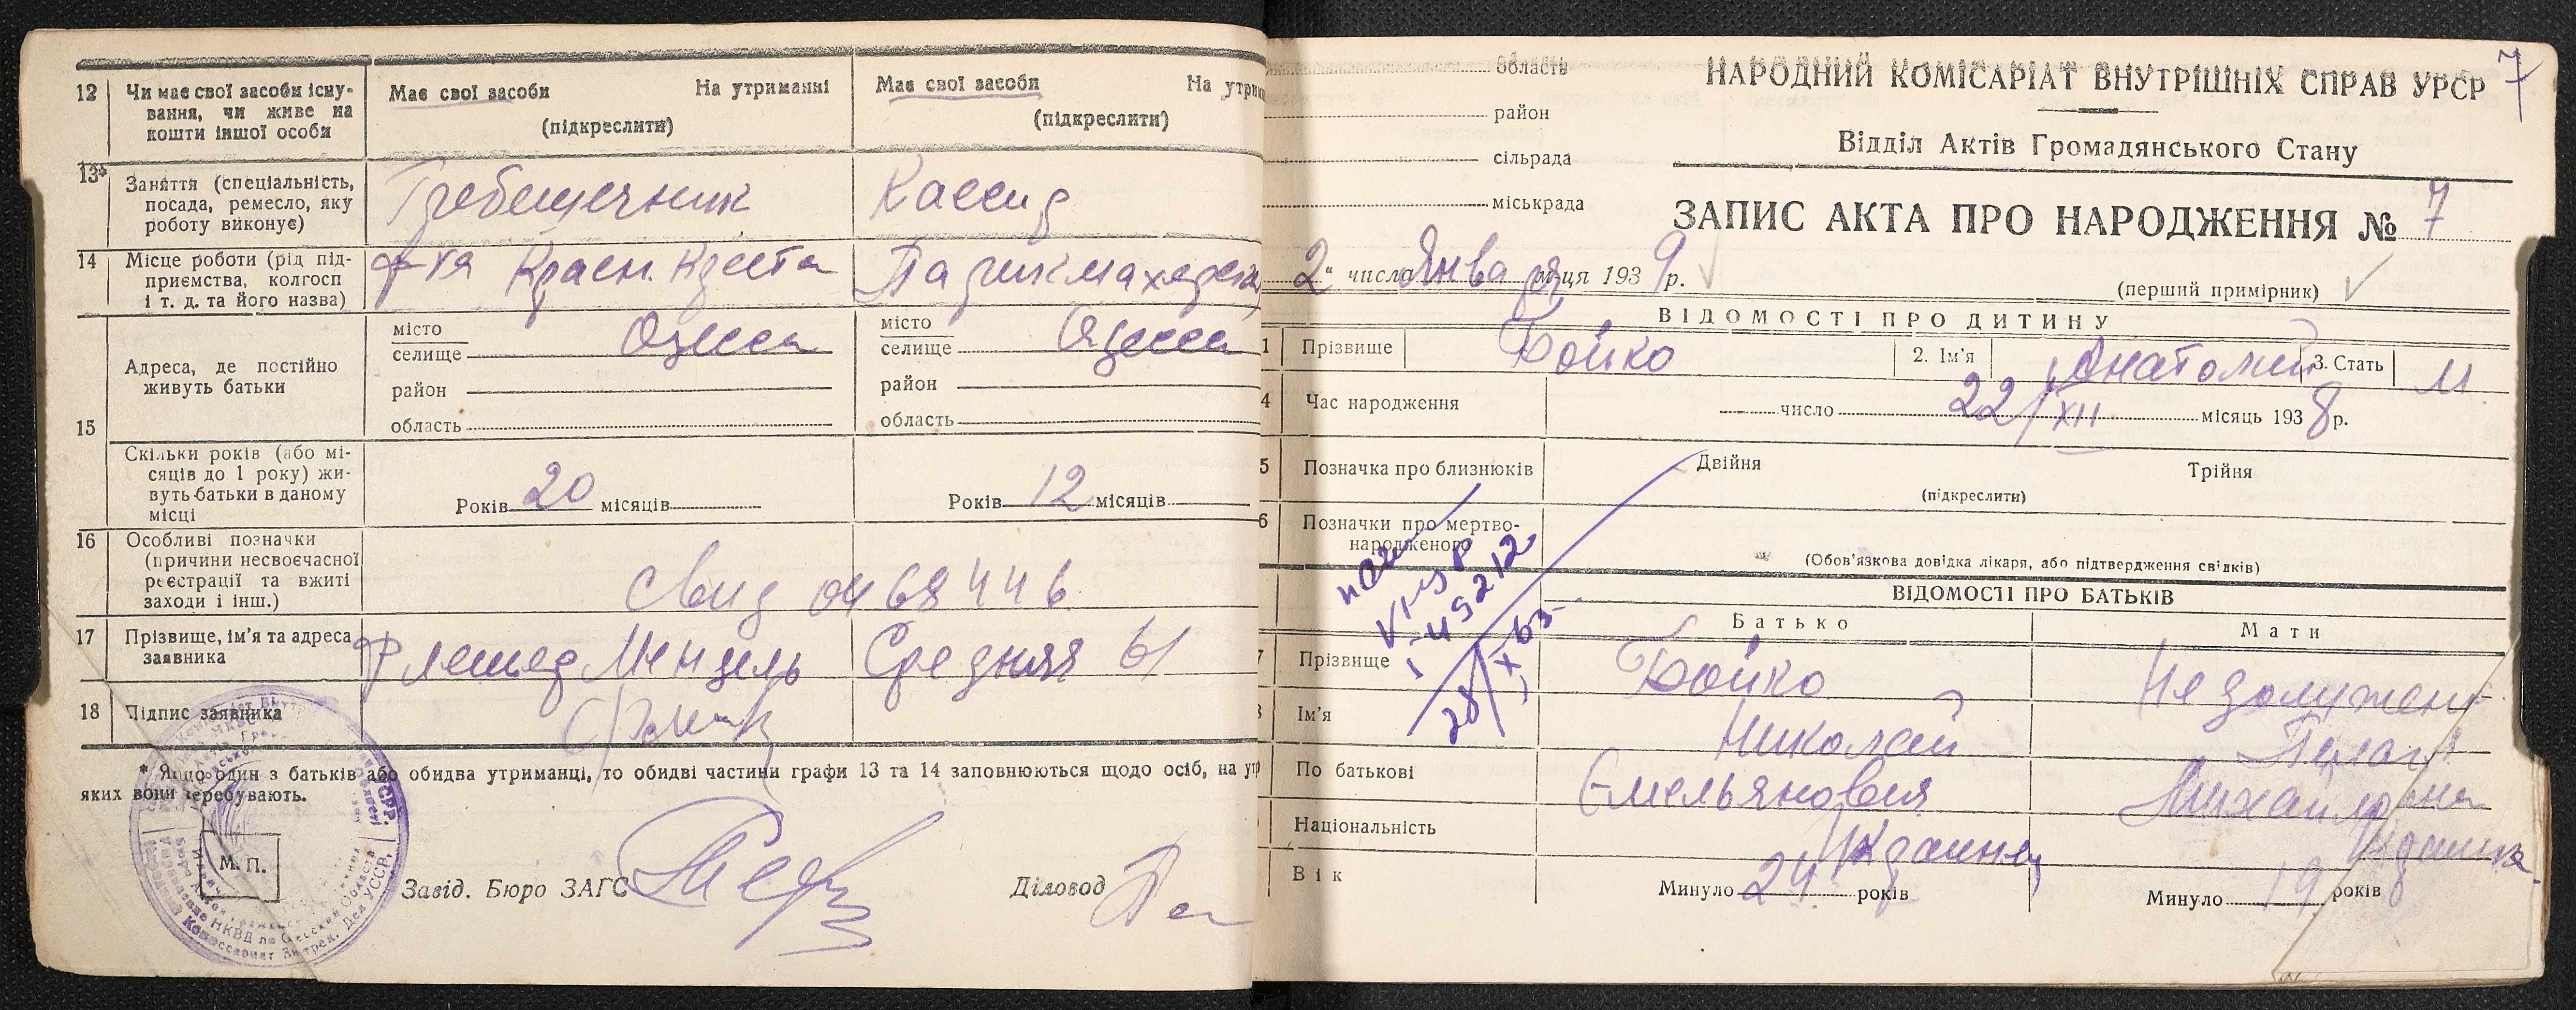 12 Чи має свої засоби існу-
вання, чи живе на
кошти іншої особи
Має свої засоби На утриманні
(підкреслити)
Має свої засоби На утрим
(підкреслити)
13* Заняття (спеціальність,
посада, ремесло, яку
роботу виконує)
Гребещечник
Кассир
14 Місце роботи (рід під-
приємства, колгосп
і т. д. та його назва)
ф-ка Красн. Креста
Парикмахерская
15 Адреса, де постійно
живуть батьки
місто
селище Одесса
район
область
місто
селище Одесса
район
область
Скільки років (або мі-
сяців до 1 року) жи-
вуть батьки в даному
місці
Років 20 місяців
Років 12 місяців
16 Особливі позначки
(причини несвоєчасної
реєстрації та вжиті
заходи і інш.)
Свид 0468446
17 Прізвище, ім'я та адреса
заявника
Флешер Мендель Средняя 61
18 Підпис заявника
* Якщо один з батьків або обидва утриманці, то обидві частини графи 13 та 14 заповнюються щодо осіб, на утр
яких вони перебувають.
М. П.
Завід. Бюро ЗАГС
Діловод
7
область
район
сільрада
міськрада
НАРОДНИЙ КОМІСАРІАТ ВНУТРІШНІХ СПРАВ УРСР
Відділ Актів Громадянського Стану
ЗАПИС АКТА ПРО НАРОДЖЕННЯ № 7
2" числа Января м-ця 1939 р.
(перший примірник)
ВІДОМОСТІ ПРО ДИТИНУ
1 Прізвище Бойко 2. Ім'я Анатолий 3. Стать М
4 Час народження число 22/XII місяць 1938 р.
5 Позначка про близнюків Двійня Трійня
(підкреслити)
6 Позначки про мертво-
народженого
(Обов'язкова довідка лікаря, або підтвердження свідків)
ВІДОМОСТІ ПРО БАТЬКІВ
Батько Мати
7 Прізвище Бойко
Ім'я Николай
По батькові Емельянович Михайловна
Національність
Вік Минуло 24 років Минуло 19 років